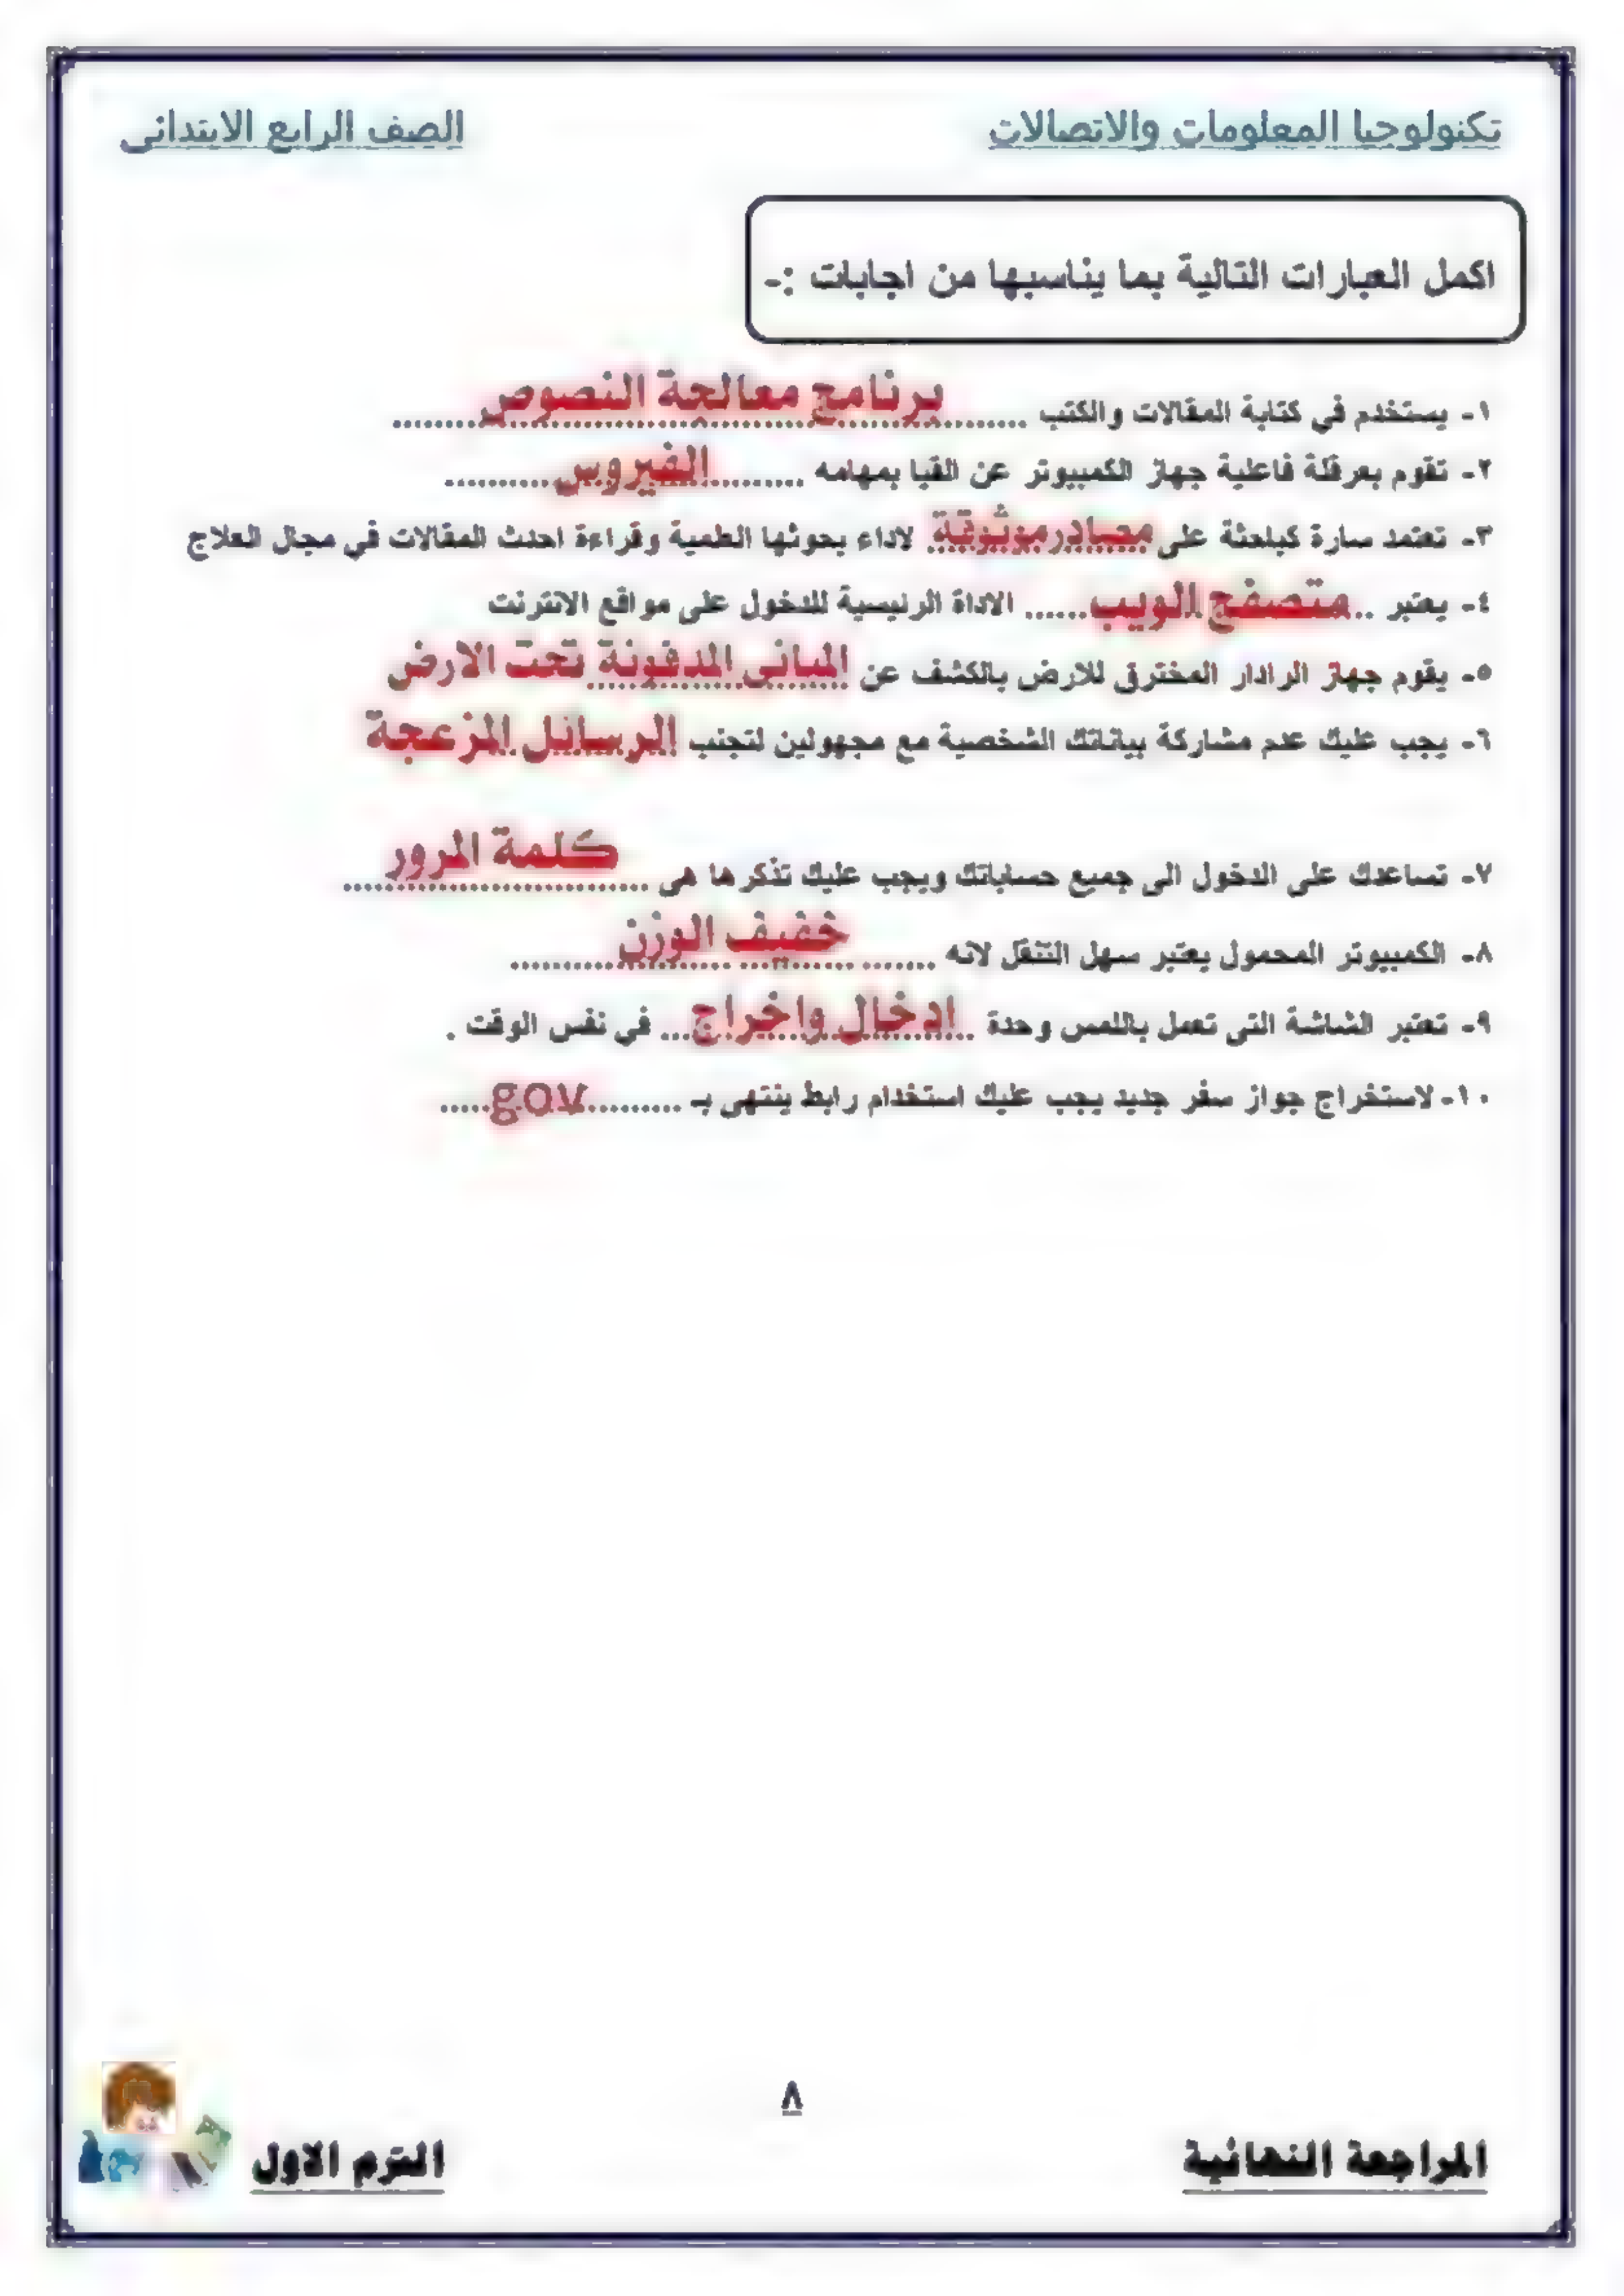 تكنولوجيا المعلومات والاتصالات
الصف الرابع الابتدائى
اكمل العبارات التالية بما يناسبها من اجابات :-
١- يستخدم في كتابة المقالات والكتب ......برنامج معالجة النصوص......
٢- تقوم بعرقلة فاعلية جهاز الكمبيوتر عن القيا بمهامه ......الفيروس......
٣- تعتمد سارة كباحثة على مصادر موثوقة لاداء بحوثها العلمية وقراءة احدث المقالات في مجال العلاج
٤- يعتبر ..متصفح الويب...... الاداة الرئيسية للدخول على مواقع الانترنت
٥- يقوم جهاز الرادار المخترق للارض بالكشف عن المبانى المدفونة تحت الارض
٦- يجب عليك عدم مشاركة بياناتك الشخصية مع مجهولين لتجنب الرسائل المزعجة
٧- تساعدك على الدخول الى جميع حساباتك ويجب عليك تذكرها هى ......كلمة المرور......
٨- الكمبيوتر المحمول يعتبر سهل التنقل لانه ......خفيف الوزن......
٩- تعتبر الشاشة التى تعمل باللمس وحدة ..ادخال واخراج... فى نفس الوقت .
١٠- لاستخراج جواز سفر جديد يجب عليك استخدام رابط ينتهى بـ .........gov.....
٨
المراجعة النهائية
الترم الاول